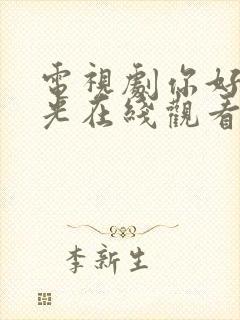 電視劇你好
光在綫觀看
李新生